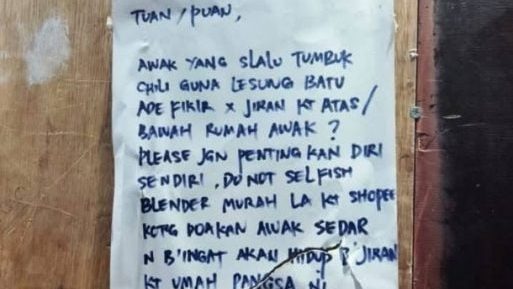 TUAN / PUAN,
AWAK YANG SLALU TUMBUK
CHILI GUNA LESUNG BATU
ADE FIKIR X JIRAN KT ATAS /
BAWAH RUMAH AWAK ?
PLEASE JGN PENTINGKAN DIRI
SENDIRI . DO NOT SELFISH
BLENDER MURAH LA KT SHOPEE
DOAKAN AWAK SEDAR
N B'INGAT AKAN HIDUP B'JIRAN
KT UMAH PANGSA NI